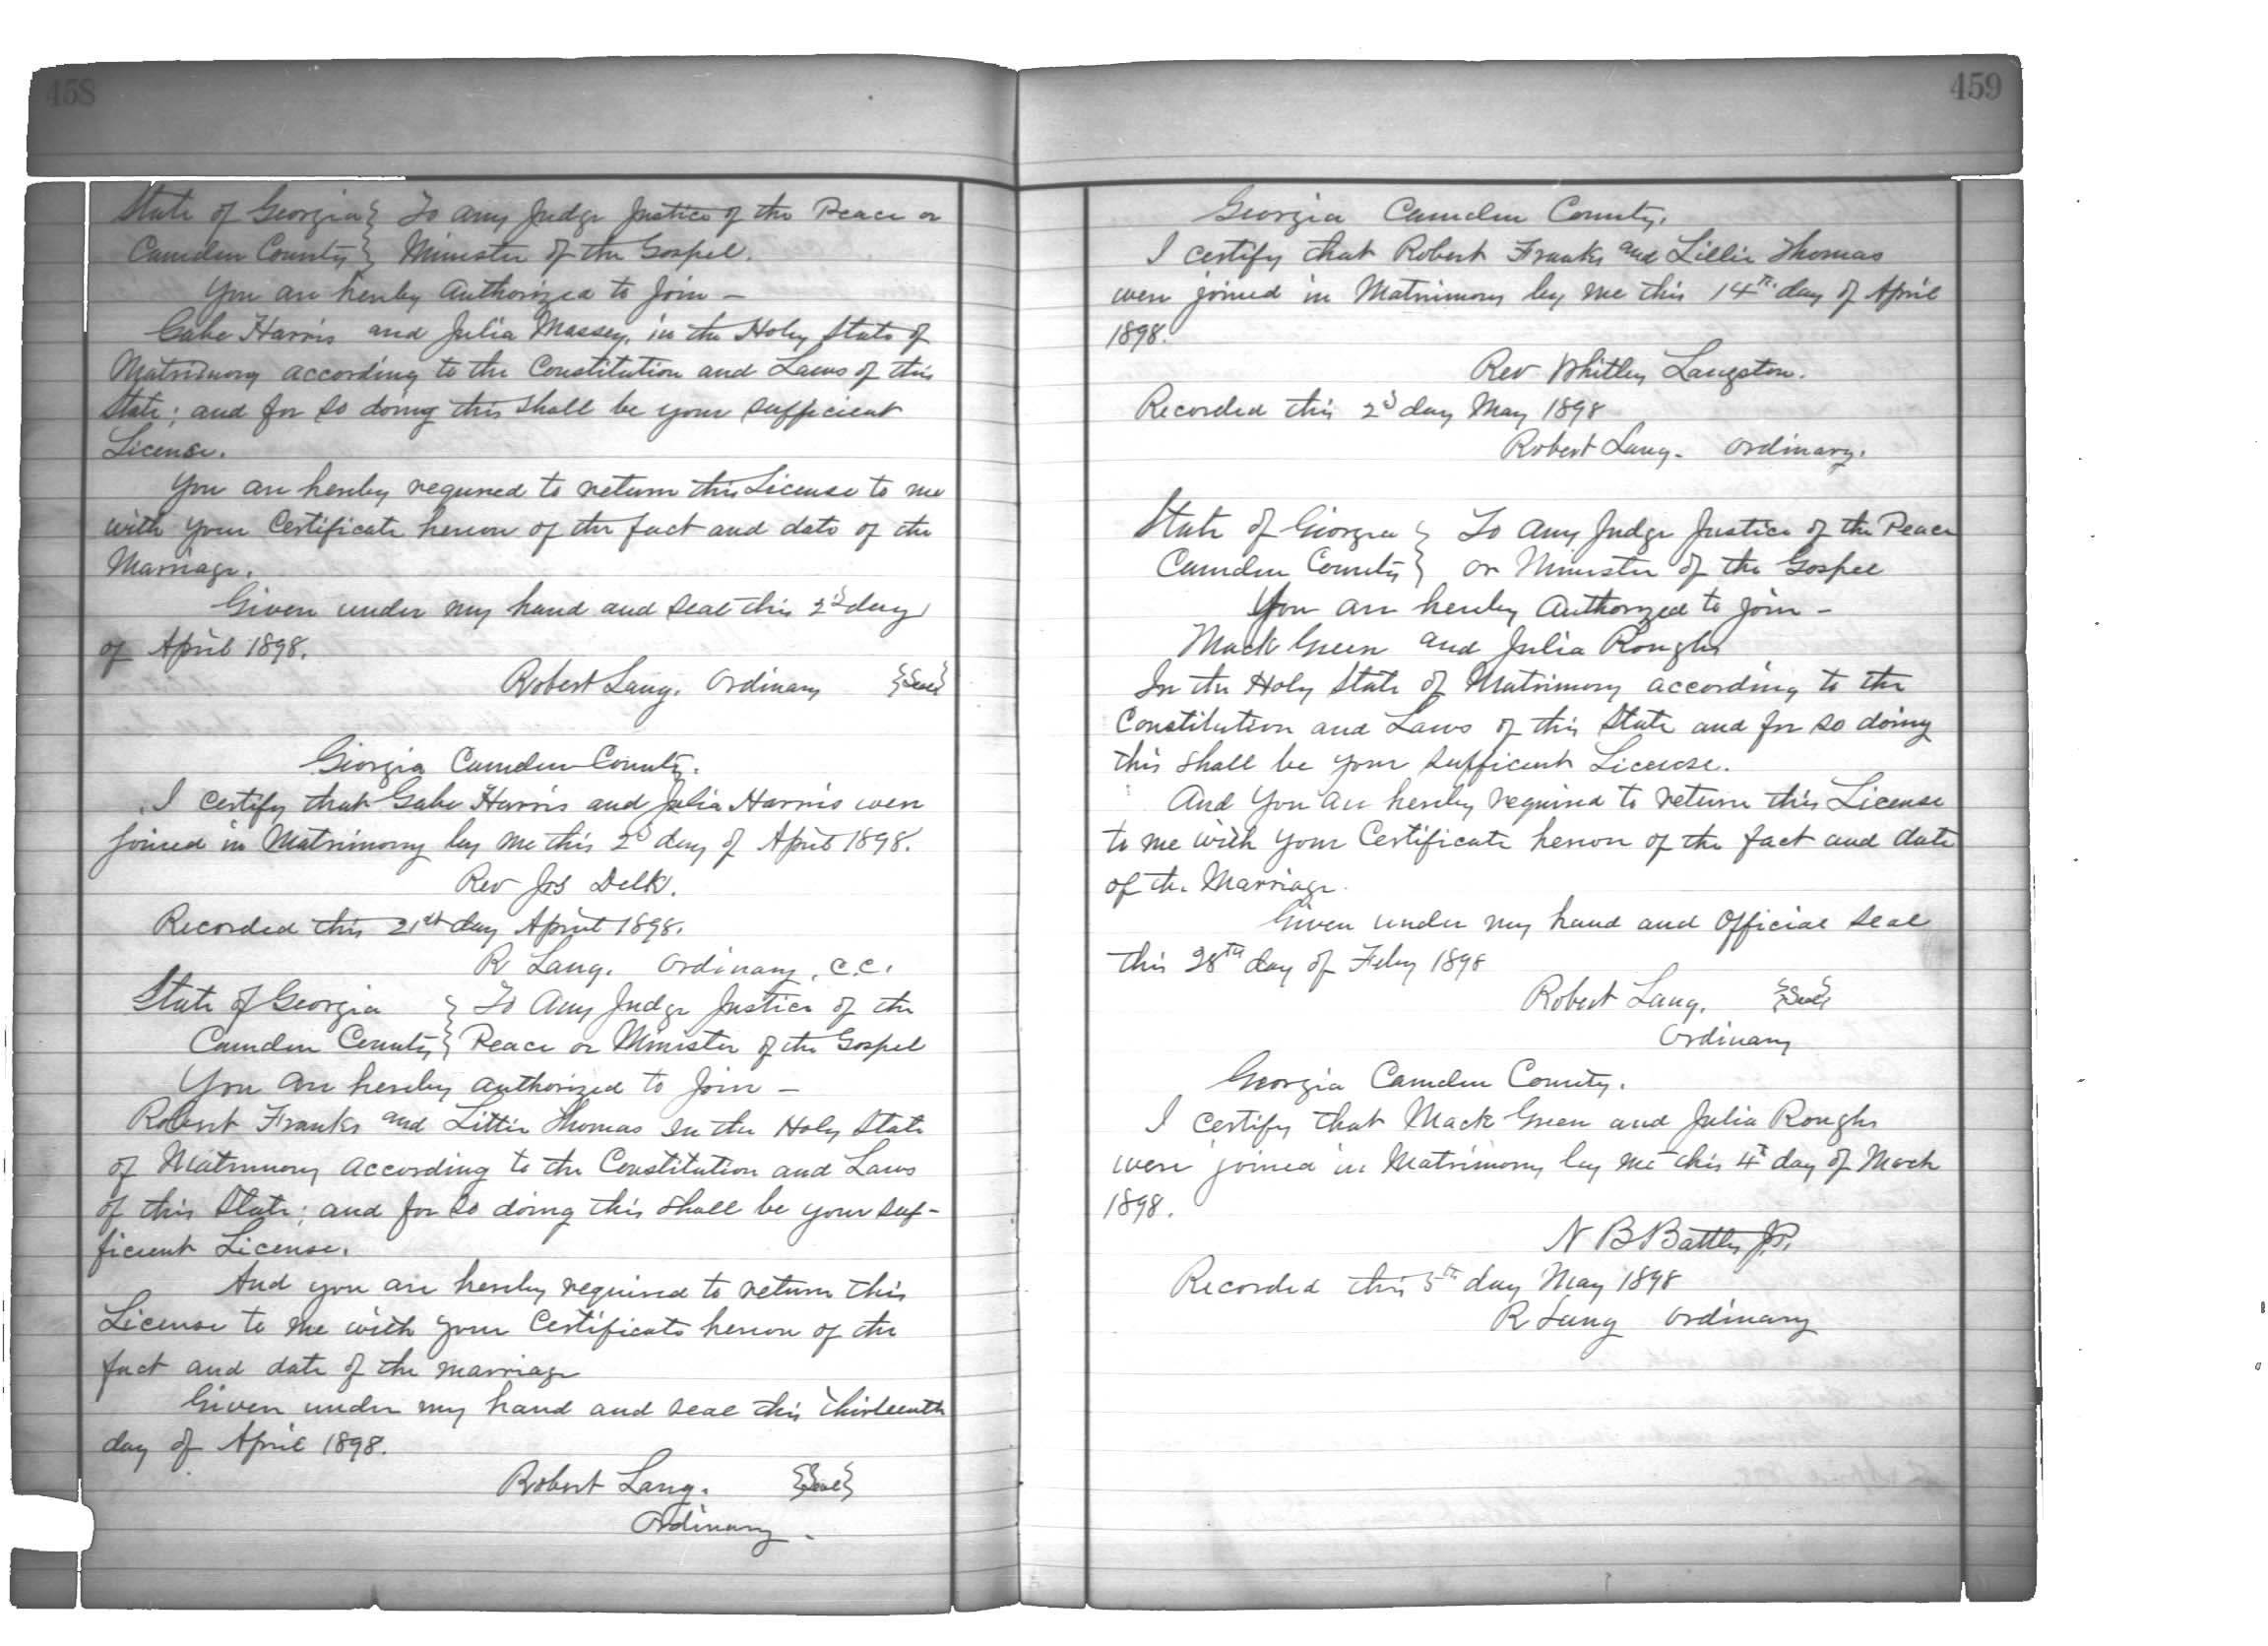 458
State of Georgia } To any Judge Justice of the Peace or
Camden County } Minister of the Gospel.
You are hereby Authorized to Join —
Gabe Harris and Julia Massey, in the Holy State of
Matrimony according to the Constitution and Laws of this
State; and for so doing this shall be your sufficient
License.
You are hereby required to return this License to me
with your Certificate hereon of the fact and date of the
Marriage.
Given under my hand and seal this 2d day
of April 1898.
Robert Lang. Ordinary {Seal}
Georgia Camden County.
I certify that Gabe Harris and Julia Harris were
joined in Matrimony by me this 2d day of April 1898.
Rev Jos Delk.
Recorded this 21st day April 1898.
R Lang. Ordinary. C.C.
State of Georgia } To Any Judge Justice of the
Camden County } Peace or Minister of the Gospel
You are hereby authorized to Join —
Robert Franks and Littie Thomas In the Holy State
of Matrimony according to the Constitution and Laws
of this State; and for so doing this shall be your suf-
ficient License.
And you are hereby required to return this
License to me with your Certificate hereon of the
fact and date of the marriage
Given under my hand and seal this Thirteenth
day of April 1898.
Robert Lang. {Seal}
Ordinary.
459
Georgia Camden County.
I certify that Robert Franks and Lillie Thomas
were joined in Matrimony by me this 14th day of April
1898.
Rev Whitley Langston.
Recorded this 2d day May 1898
Robert Lang. Ordinary.
State of Georgia } To Any Judge Justice of the Peace
Camden County } or Minister of the Gospel
You are hereby Authorized to Join —
Mack Green and Julia Roughs
In the Holy State of Matrimony according to the
Constitution and Laws of this State and for so doing
this shall be your sufficient License.
And You are hereby required to return this License
to me with your Certificate hereon of the fact and date
of the Marriage.
Given under my hand and Official seal
this 28th day of Feby 1898
Robert Lang. {Seal}
Ordinary
Georgia Camden County.
I certify that Mack Green and Julia Roughs
were joined in Matrimony by me this 4th day of Mach
1898.
N B Battles J.P.
Recorded this 5th day May 1898
R Lang Ordinary